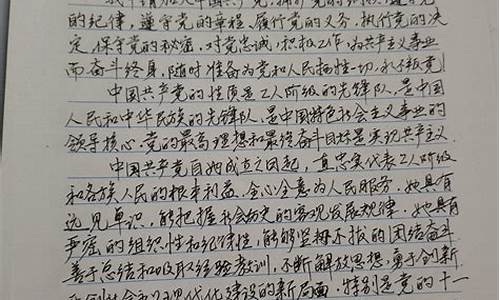 的纪律，遵守党的章程，履行党的义务，执行党的决
定，保守党的秘密，对党忠诚，积极工作，为共产主义事业
而奋斗终身，随时准备为党和人民牺牲一切，永不叛党
中国共产党的性质是工人阶级的先锋队，是中国
人民和中华民族的先锋队，是中国特色社会主义事业的
领导核心，党的最高理想和最终奋斗目标是实现共产主义
中国共产党自她成立之日起，直忠实代表工人阶级
和各族人民的根本利益，全心全意为人民服务，她具有
远见卓识，能把握社会历史的客观发展规律，她具有
严密的组织性和纪律性，能够坚持不拔的团结奋斗
善于总结和吸取经验教训，不断解放思想，勇于创新
社会主义现代化建设的新局面，特别是党的十一